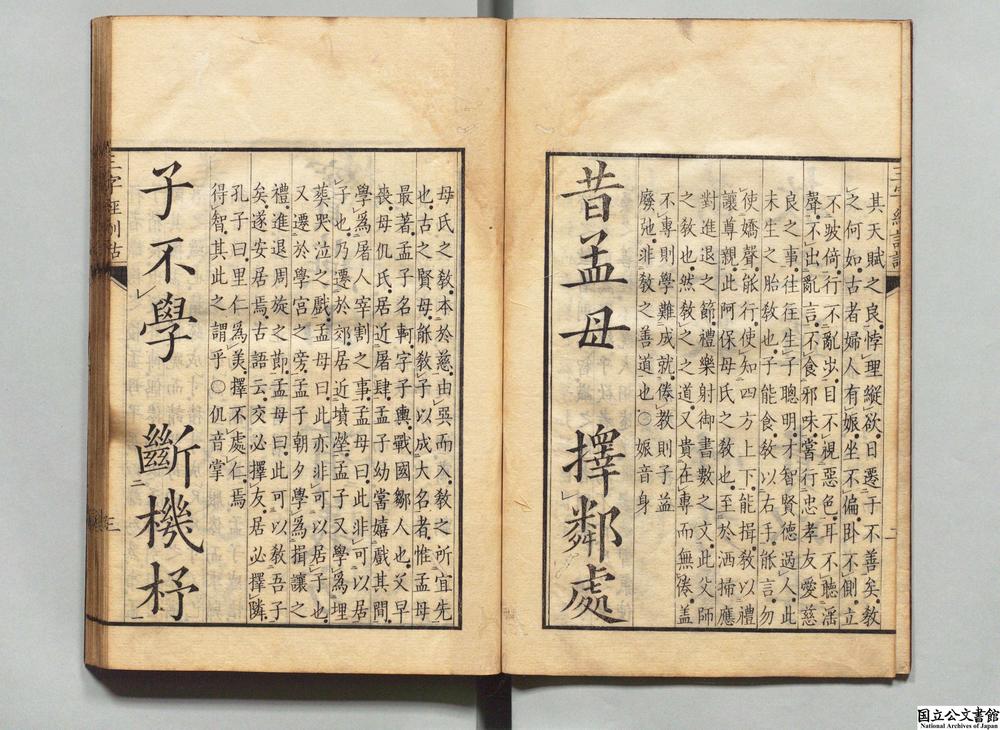 三字經訓詁
其天賦之良悖理縱欲日遷于不善矣教
之何如古者婦人有娠坐不偏臥不側立
不跛倚行不亂步目不視惡色耳不聽淫
聲不出亂言不食邪味嘗行忠孝友愛慈
良之事往往生子聰明才智賢德過人此
未生之胎教也子能食教以右手能言勿
使嬌聲能行使知四方上下能揖教以禮
讓尊親此阿保母氏之教也至於洒掃應
對進退之節禮樂射御書數之文此父師
之教也然教之之道又貴在專而無倦蓋
不專則學難成就倦教則子益
廢弛非教之善道也○娠音身
昔孟母 擇鄰處
二
母氏之教本於慈由巽而入教之所宜先
也古之賢母能教子以成大名者惟孟母
最著孟子名軻字子輿戰國鄒人也父早
喪母仉氏居近屠肆孟子幼當嬉戲其間
學為屠人宰割之事孟母曰此非可以居
子也乃遷於郊居近墳塋孟子又學為埋
葬哭泣之戲孟母曰此亦非可以居子也
又遷於學宮之旁孟子朝夕學為揖讓之
禮進退周旋之節孟母曰此可以教吾子
矣遂安居焉古語云交必擇友居必擇隣
孔子曰里仁為美擇不處仁焉
得智其此之謂乎○仉音掌
子不學 斷機杼
二 一
三字經訓詁
三
国立公文書館
National Archives of Japan